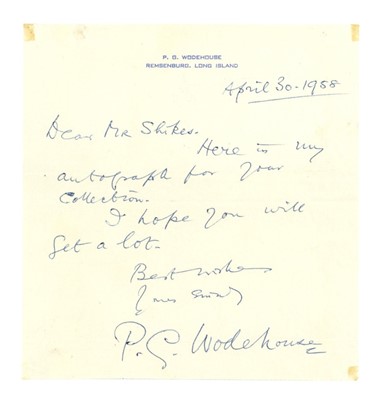 P. G. WODEHOUSE
REMSENBURG, LONG ISLAND
April 30. 1958
Dear Mr Shikes.
Here is my
autograph for your
collection.
I hope you will
get a lot.
Best wishes
Yours sincerely
P. G. Wodehouse